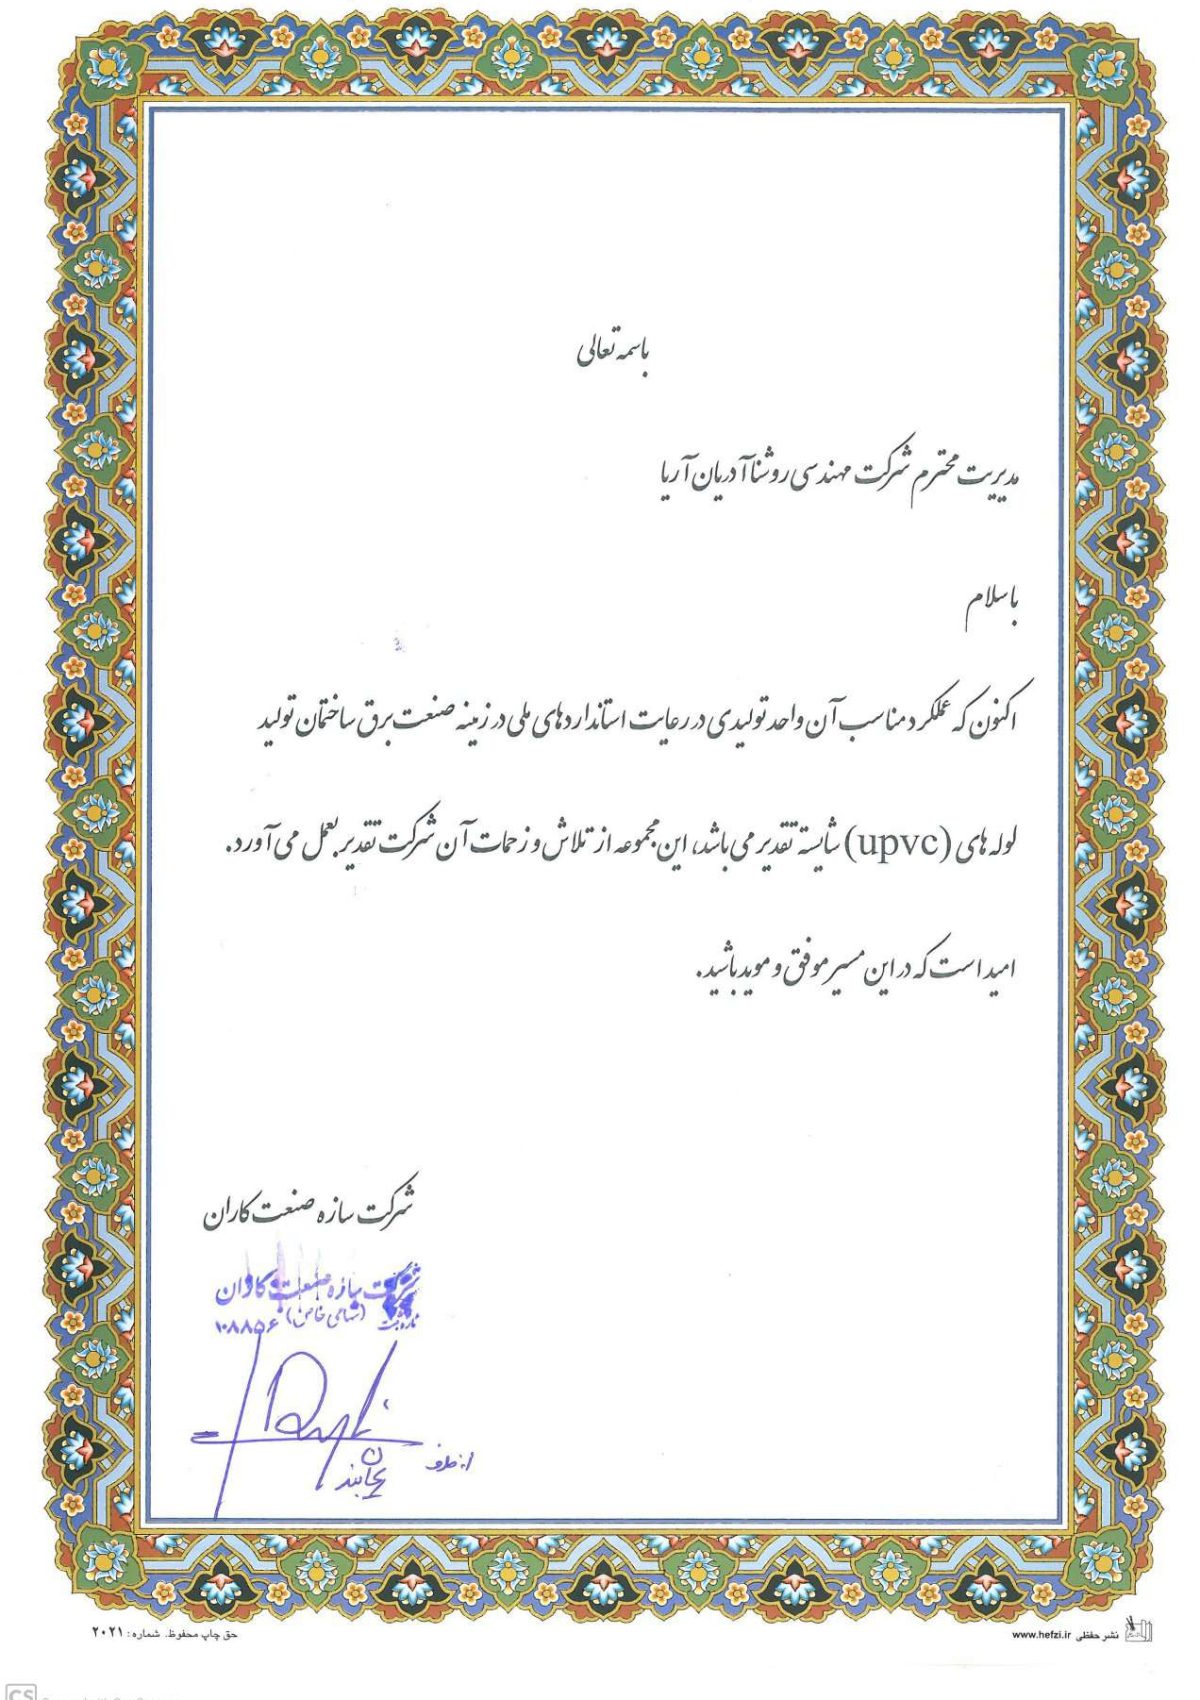 باسمه تعالی
مدیریت محترم شرکت مهندسی روشنا آدریان آریا
با سلام
اکنون که عملکرد مناسب آن واحد تولیدی در رعایت استانداردهای ملی در زمینه صنعت برق ساختمان تولید
لوله های (upvc) شایسته تقدیر می باشد، این مجموعه از تلاش و زحمات آن شرکت تقدیر بعمل می آورد.
امید است که در این مسیر موفق و موید باشید.
شرکت سازه صنعت کاران
شرکت سازه صنعت کاران
(سهامی خاص) ۱۰۸۸۵۶
از طرف
حق چاپ محفوظ. شماره: ۲۰۲۱
نشر حفظی www.hefzi.ir
CS